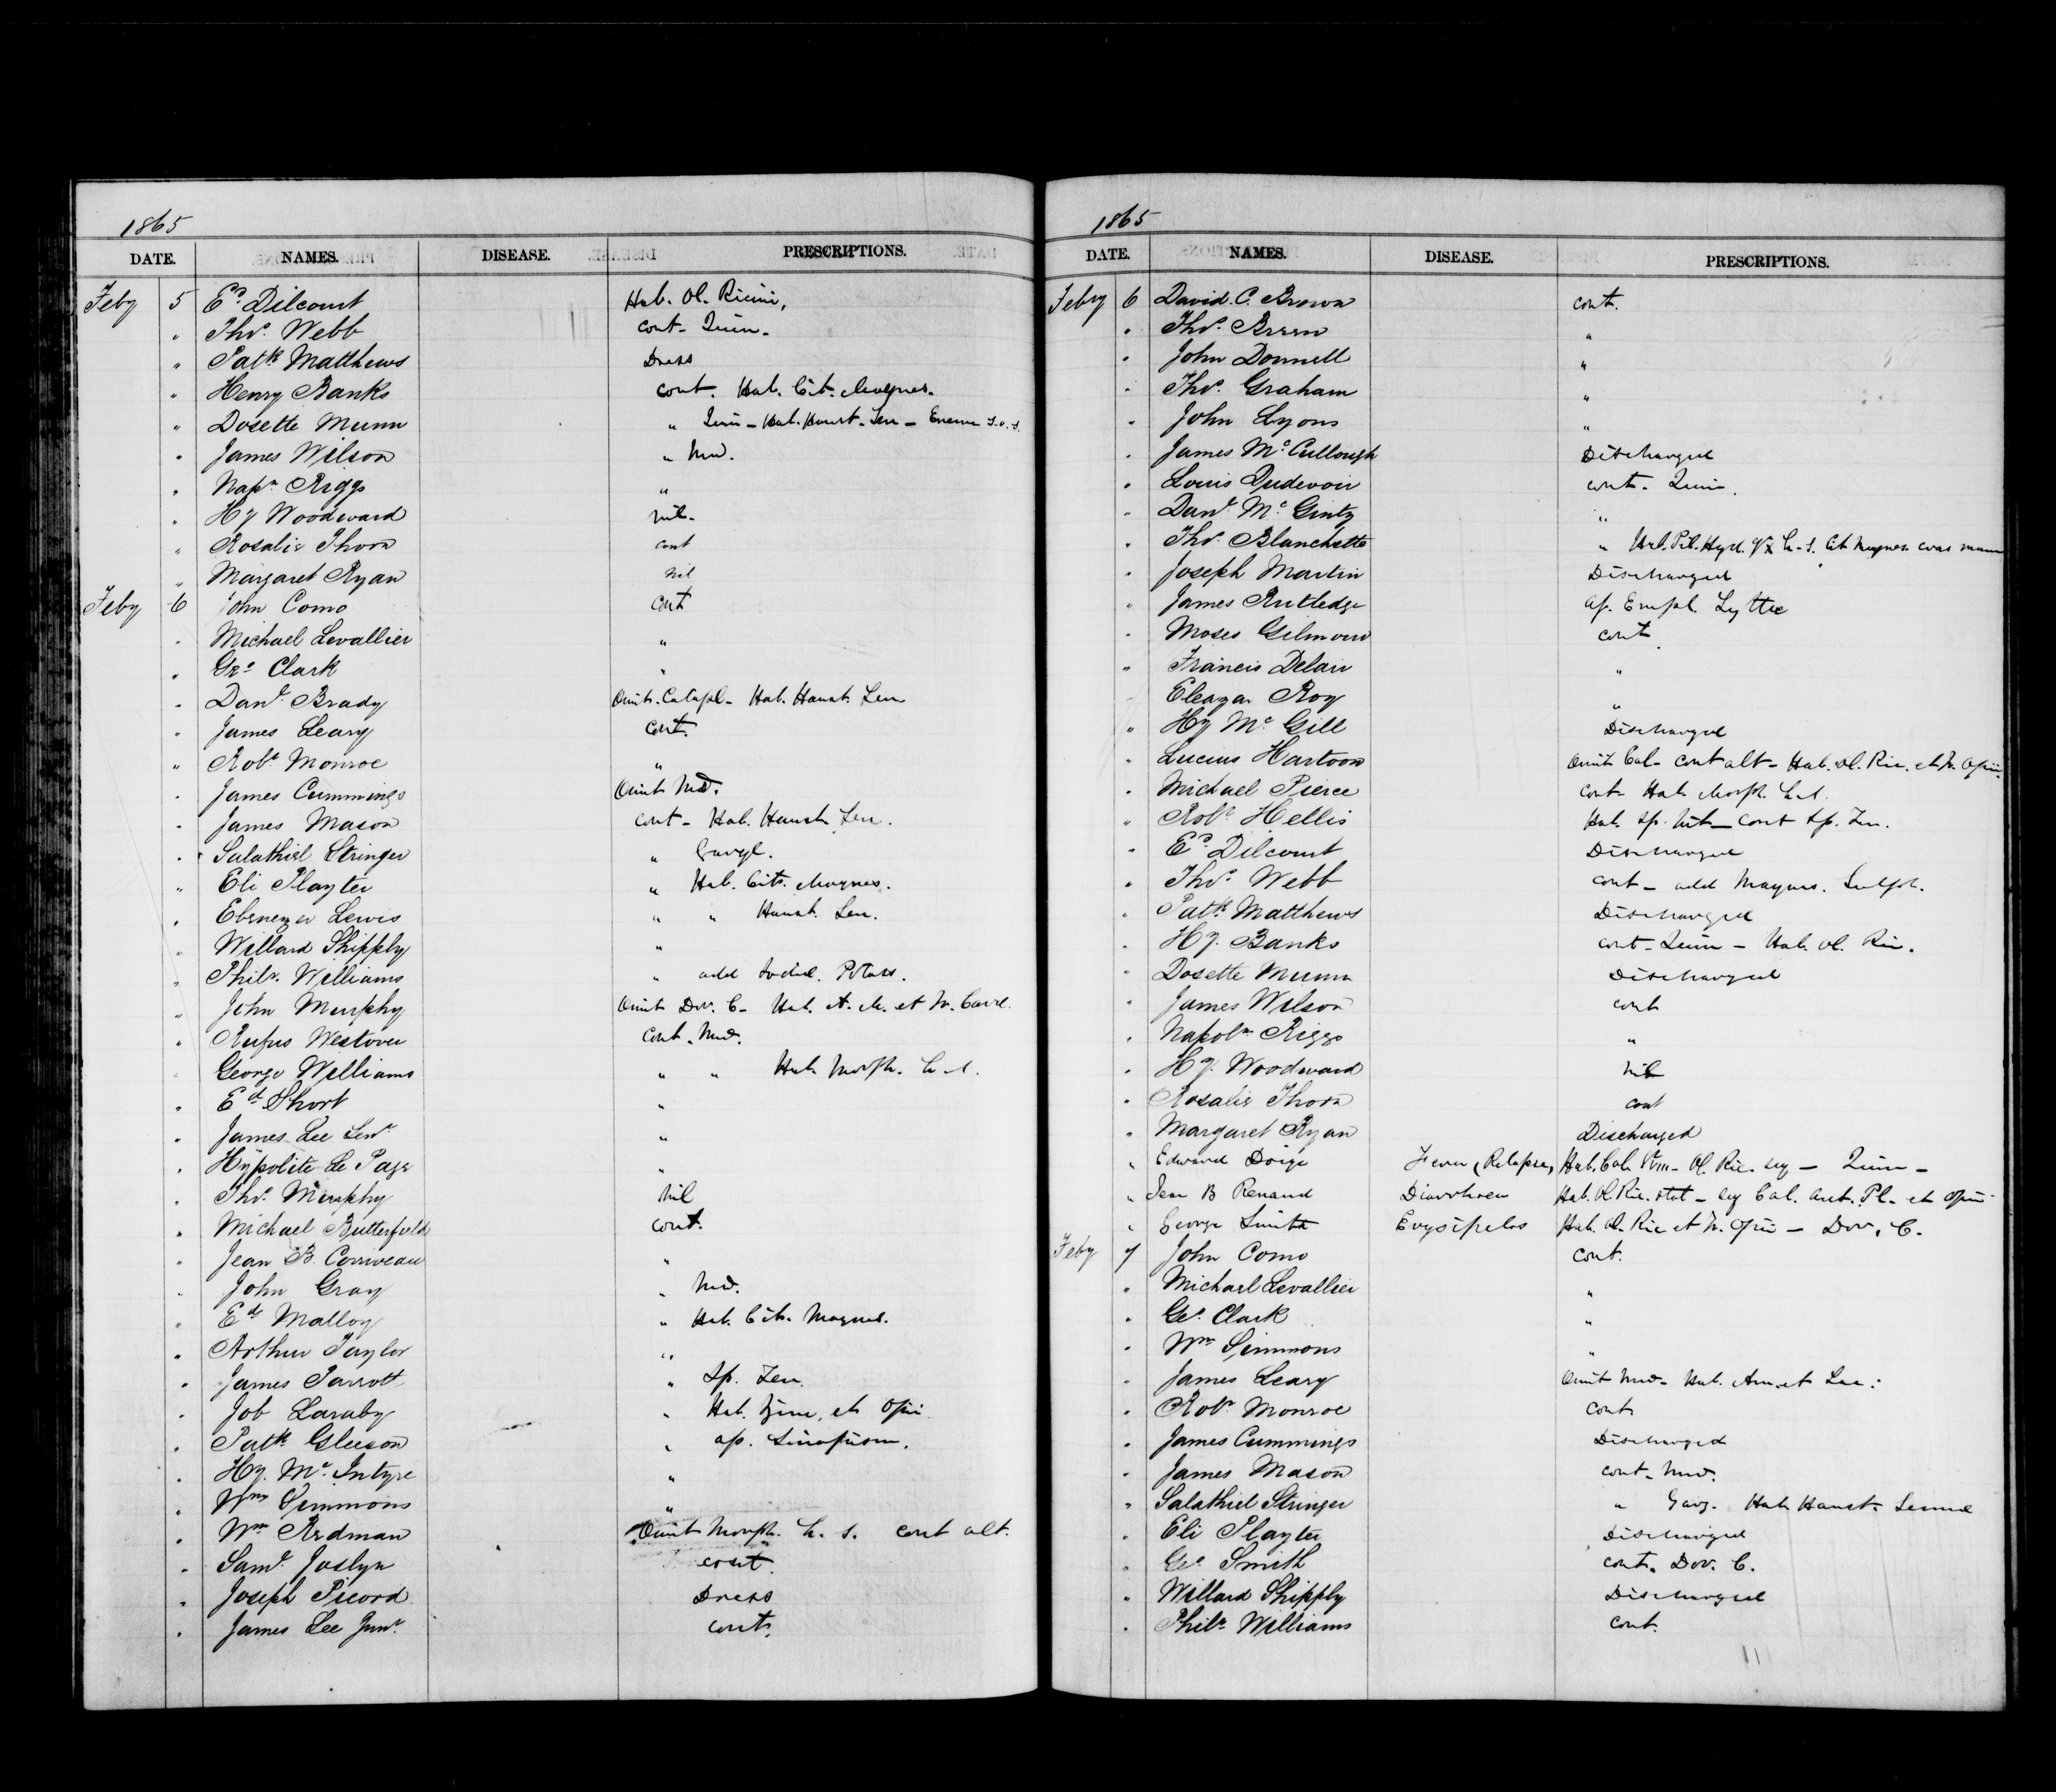 1865
DATE. NAMES. DISEASE. PRESCRIPTIONS.
Feby 5 Ed. Dilcourt Hab. Ol. Ricini,
" Thos. Webb cont - Quin -
" Patk Matthews Dress
" Henry Banks cont. Hab. Cit. Magnes.
" Dosette Munn " Quin - Hab. Haust. Sen - Enema S.O.S.
" James Wilson " Med.
" Napn Riggs "
" Hy Woodward nil -
" Rosalie Thorn cont
" Margaret Ryan nil
Feby 6 John Como cont
" Michael Levallier "
" Geo Clark "
" Danl Brady Omit. Catapl - Hab. Haust. Sen
" James Leary cont.
" Robt Monroe "
" James Cummings Omit Med.
" James Mason cont - Hab. Haust Sen.
" Salathiel Stringer " Gargl.
" Eli Playter " Hab. Cit. Magnes.
" Ebenezer Lewis " " Haust. Sen.
" Willard Shipply "
" Philr. Williams " add Iodid. Potass.
" John Murphy Omit Dov. C - Hab. A. M. et Tr. Card.
" Rufus Westover cont. Med.
" George Williams " " Hab Morph. h s.
" Ed Short "
" James Lee Senr "
" Hypolite Le Page "
" Thos. Murphy Nil
" Michael Butterfield cont.
" Jean B. Corriveau "
" John Gray " Med.
" Ed Malloy " Hab. Cit. Magnes.
" Arthur Taylor "
" James Parrott " Sp. Fru.
" Job Laraby " Hab. et Opii
" Patk Gleeson " ap. Sinapism.
" Hy. Mc. Intyre "
" Wm Simmons "
" Wm Redman Omit Morph. h. s. cont alt.
" Saml Joslyn cont.
" Joseph Picord Dress
" James Lee Junr. cont.
1865
DATE. NAMES. DISEASE. PRESCRIPTIONS.
Feby 6 David. C. Brown cont.
" Thos. Breen "
" John Donnell "
" Thos. Graham "
" John Lyons "
" James Mc Cullough Discharged
" Louis Dudevoir cont. Quin.
" Danl Mc Ginty "
" Thos. Blanchette " Hab. Pil. Hyd. gr x h-s. Cit Magnes. cras mane
" Joseph Martin Discharged
" James Rutledge ap. Empl. Lyttæ
" Moses Gilmour cont.
" Francis Delair "
" Eleazar Roy "
" Hy Mc Gill Discharged
" Lucius Hartoon Omit Cal - cont alt - Hab. Ol. Ric. et Tr. Opii.
" Michael Pierce cont Hab. Morph. h.s.
" Robt Hellis Hab. Sp. Nit - cont Sp. Fru.
" Ed. Dilcourt Discharged
" Thos. Webb cont - add Magnes. Sulph.
" Patk Matthews Discharged
" Hy. Banks cont - Quin - Hab. Ol. Ric.
" Dosette Munn Discharged
" James Wilson cont
" Napoln Riggs "
" Hy. Woodward Nil
" Rosalie Thorn cont
" Margaret Ryan Discharged
" Edward Doige Fever, (Relapse, Hab. Cal. gr viii - Ol. Ric. seq - Quin -
" Jean B Renaud Diarrhoea Hab. Ol. Ric. stat - seq Cal. Ant. Pl. et Opii
" George Smith Erysipelas Hab. Ol. Ric et Tr. Opii - Dov. C.
Feby 7 John Como cont.
" Michael Levallier "
" Geo. Clark "
" Wm Simmons "
" James Leary Omit Med - Hab. Am. et Lac:
" Robt Monroe cont
" James Cummings Discharged
" James Mason cont - Med.
" Salathiel Stringer " Garg. Hab Haust. Sennæ
" Eli Playter Discharged
" Geo. Smith cont. Dov. C.
" Willard Shipply Discharged
" Philr Williams cont.